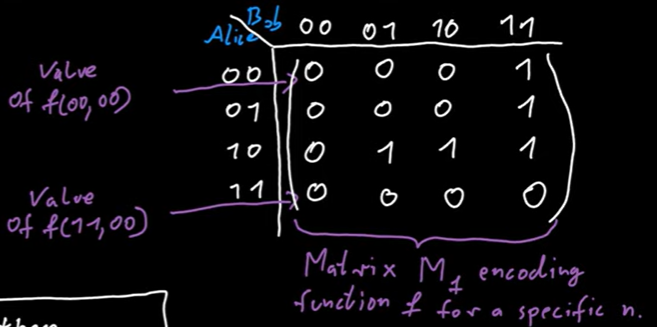 Bob
Alice
00 01 10 11
00 0 0 0 1
01 0 0 0 1
10 0 1 1 1
11 0 0 0 0
Value
of f(00,00)
Value
of f(11,00)
Matrix M_f encoding
function f for a specific n.